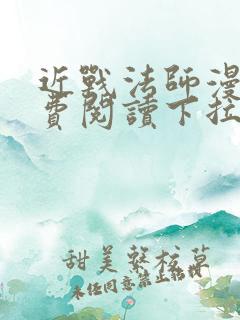 近戰法師漫
費閱讀下拉
甜美繫校草
未任同意禁止轉載